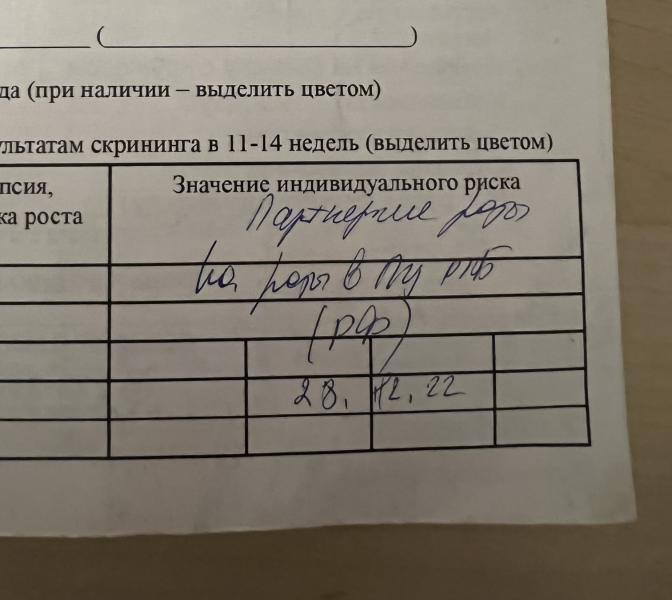 ( )
да (при наличии – выделить цветом)
ультатам скрининга в 11-14 недель (выделить цветом)
псия,
ка роста
Значение индивидуального риска
Партнерские роды
на роды в ПЦ
(РФ)
28.12.22